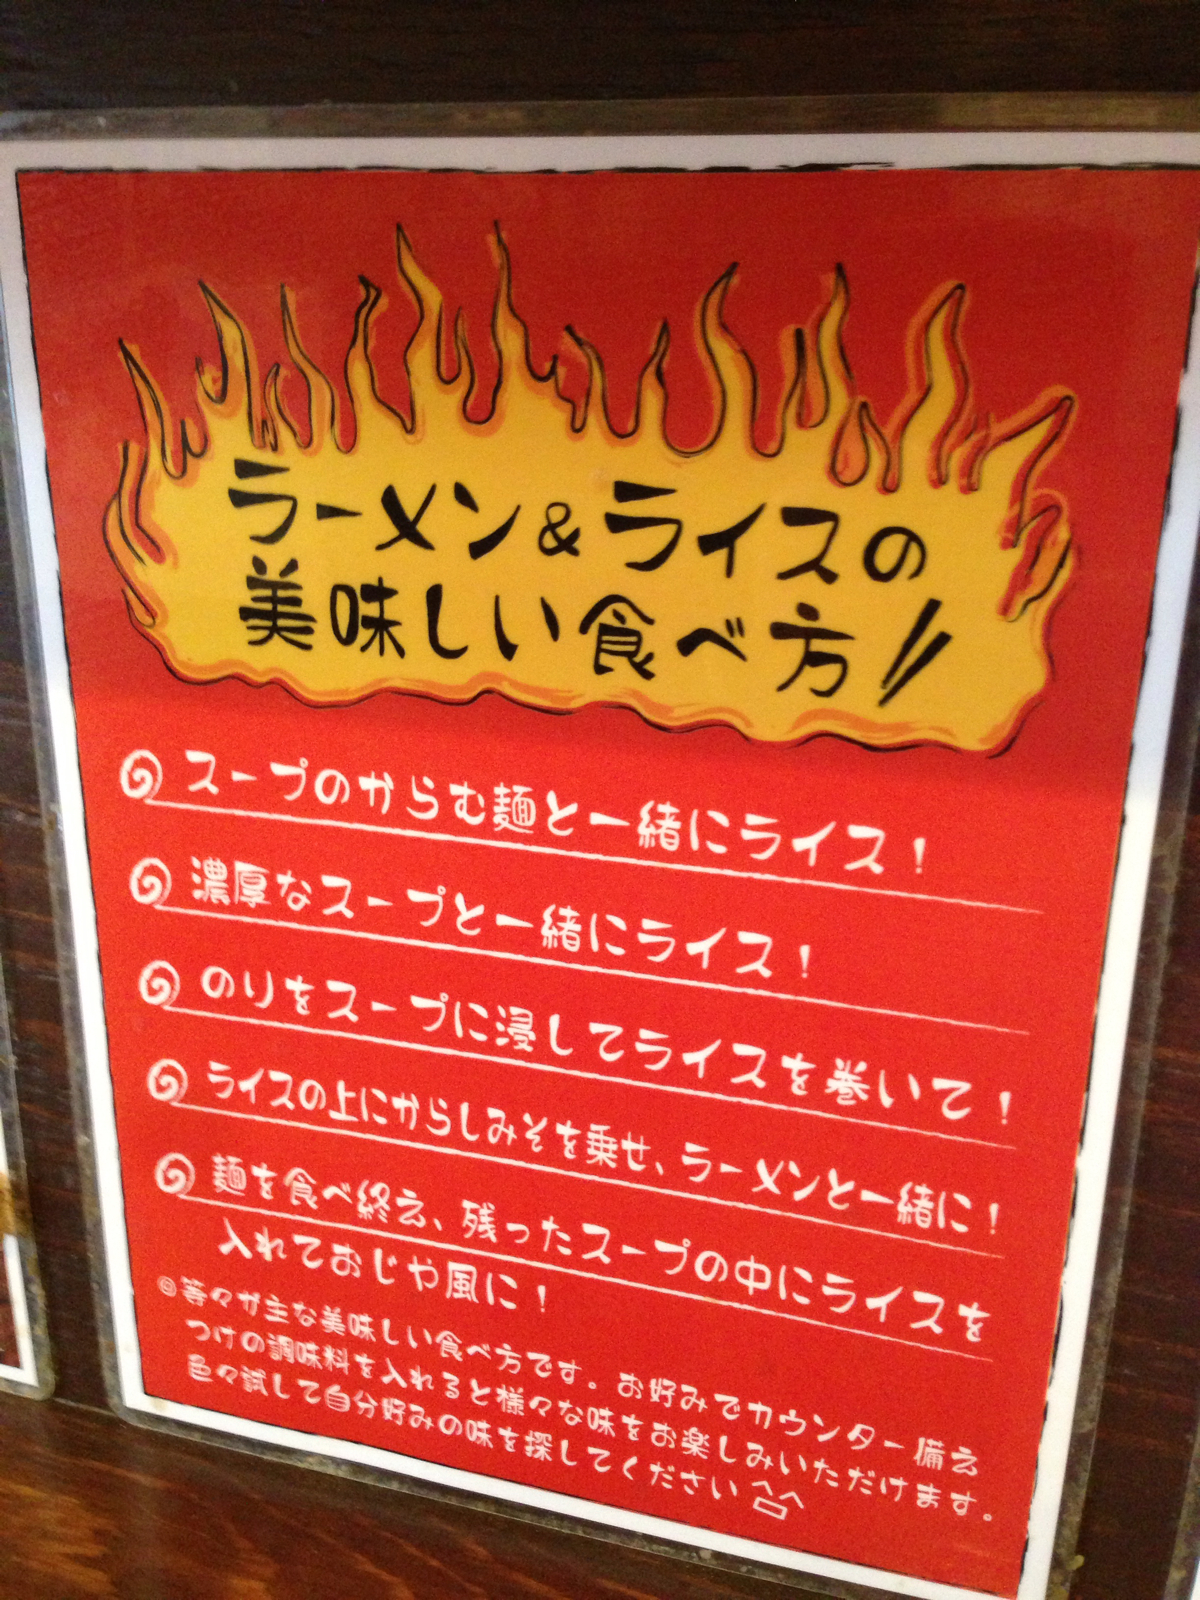 ラーメン&ライスの
美味しい食べ方!!
スープのからむ麺と一緒にライス!
濃厚なスープと一緒にライス!
のりをスープに浸してライスを巻いて!
ライスの上にからしみそを乗せ、ラーメンと一緒に!
麺を食べ終え、残ったスープの中にライスを
入れておじや風に!
◎等々が主な美味しい食べ方です。お好みでカウンター備え
つけの調味料を入れると様々な味をお楽しみいただけます。
色々試して自分好みの味を探してください^ロ^